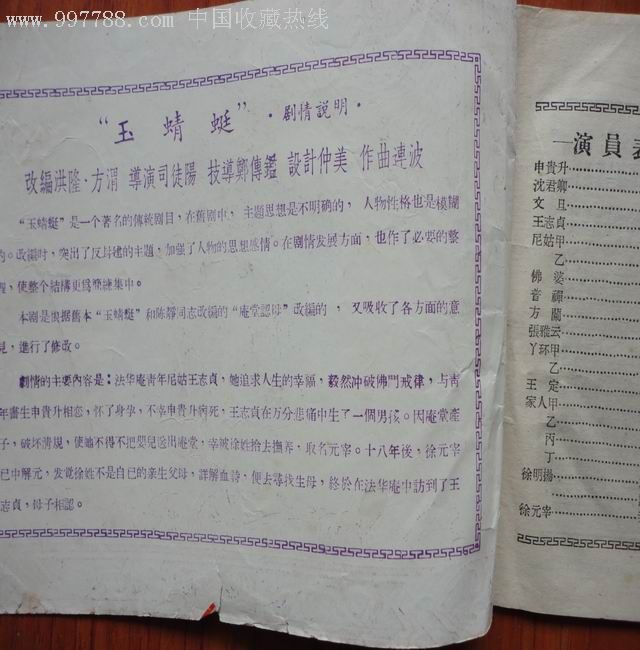 www.997788.com 中国收藏热线
“玉蜻蜓”·剧情説明·
改編洪隆·方涓 導演司徒陽 技導鄭傳鑑 設計仲美 作曲連波
“玉蜻蜓”是一个著名的傳統剧目，在舊剧中，主题思想是不明确的，人物性格也是模糊
的。改編时，突出了反封建的主題，加强了人物的思想感情。在剧情发展方面，也作了必要的整
理，使整个結構更爲
集中。
本剧是根据舊本“玉蜻蜓”和陈靜同志改編的“庵堂認母”改編的，又吸收了各方面的意
見，進行了修改。
劇情的主要內容是：法华庵青年尼姑王志貞，她追求人生的幸福，毅然冲破佛門戒律，与青
年書生申貴升相恋，怀了身孕，不幸申貴升病死，王志貞在万分悲痛中生了一個男孩。因庵堂產
子，破坏清規，使她不得不把嬰兒送出庵堂，幸被徐姓拾去撫养，取名元宰。十八年後，徐元宰
已中解元，发觉徐姓不是自己的亲生父母，詳解血詩，便去尋找生母，終於在法华庵中訪到了王
志貞，母子相認。
演員表
申貴升
沈君卿
文旦
王志貞
尼姑甲
乙
佛婆
普禪
方蘭
張雅云
丫环甲
乙
王定
家人甲
乙
丙
丁
徐明揚
徐元宰